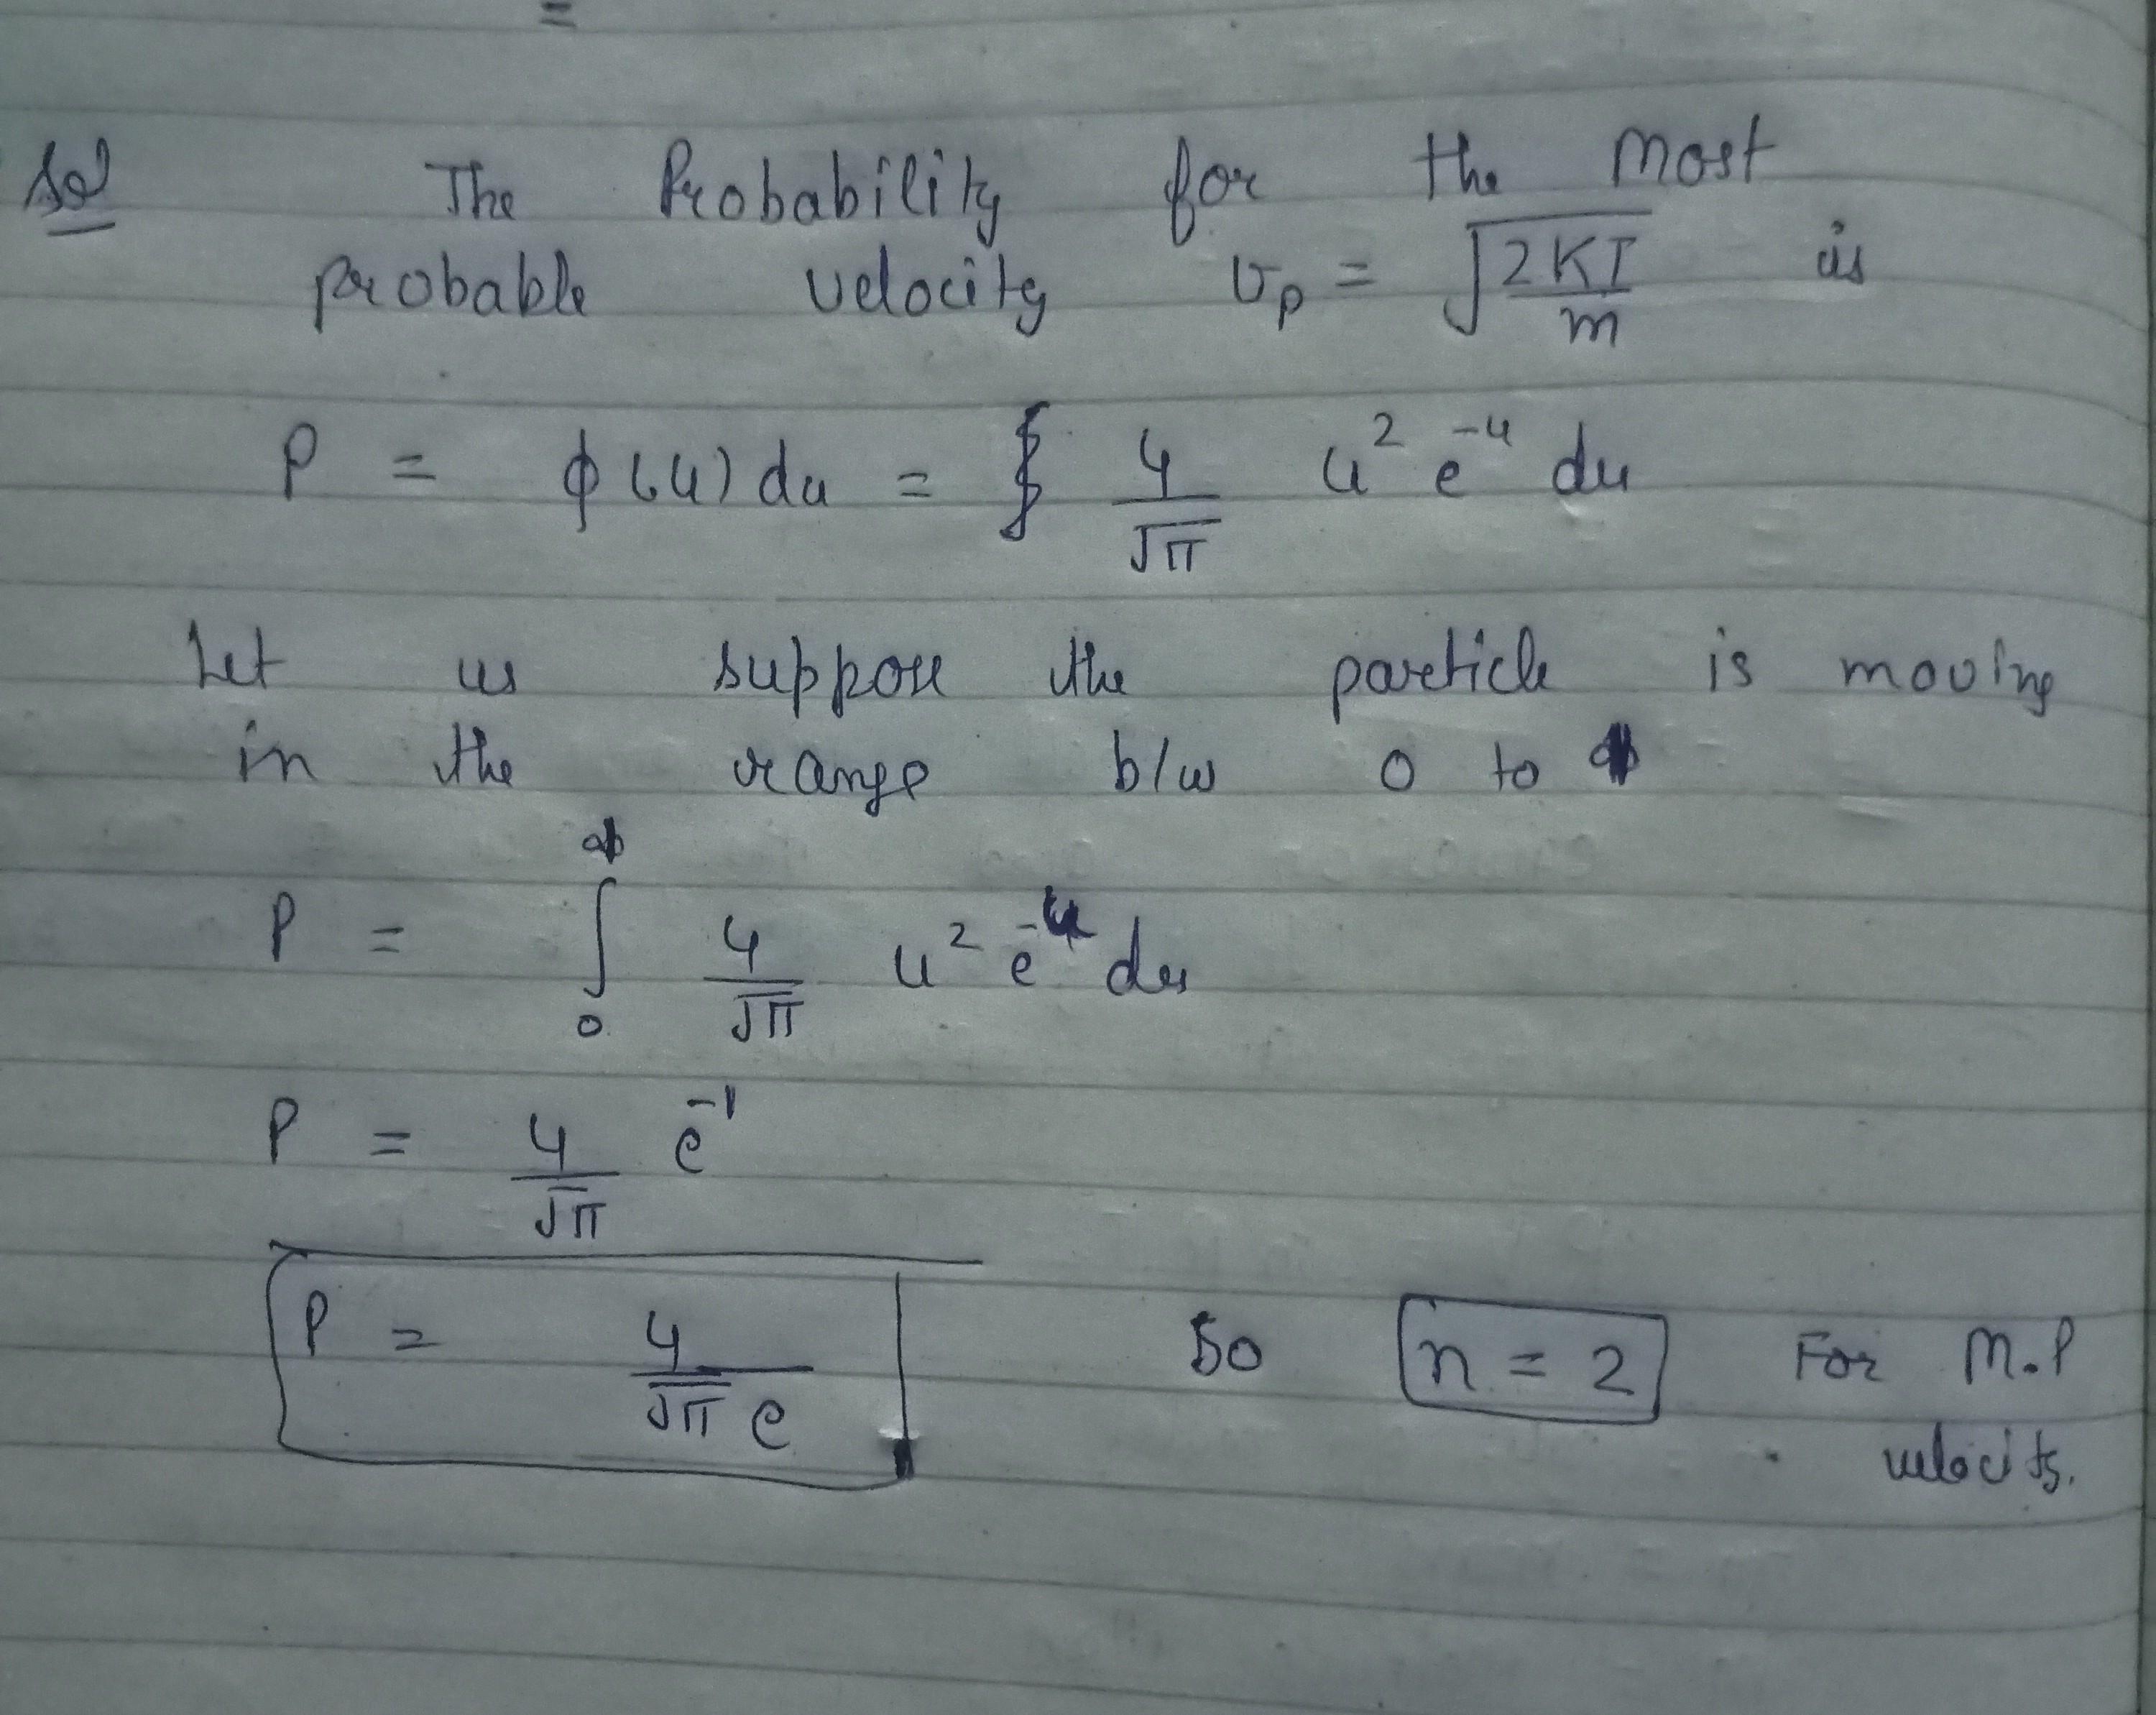 =
Sol The Probability for the most
probable velocity υp = √2KT/m is
P = ϕ(u) du = 4/√π u² e⁻ᵘ du
Let us suppose the particle is moving
in the range b/w 0 to
P = ∫₀^∞ 4/√π u² e⁻ᵘ du
P = 4/√π e⁻¹
P = 4/√π e So n = 2 For M.P
velocity.